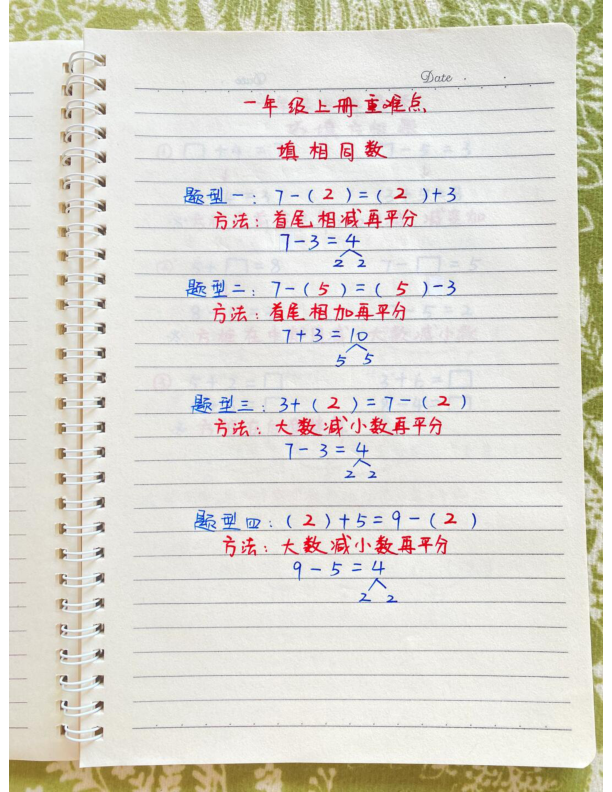 Date
一年级上册重难点
填相同数
题型一：7-(2)=(2)+3
方法：首尾相减再平分
7-3=4
2 2
题型二：7-(5)=(5)-3
方法：首尾相加再平分
7+3=10
5 5
题型三：3+(2)=7-(2)
方法：大数减小数再平分
7-3=4
2 2
题型四：(2)+5=9-(2)
方法：大数减小数再平分
9-5=4
2 2